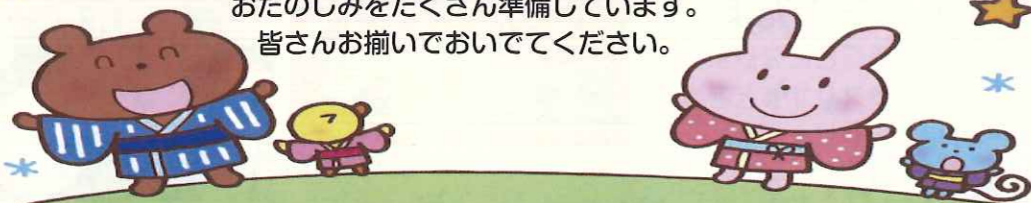 おたのしみをたくさん準備しています。
皆さんお揃いでおいでてください。